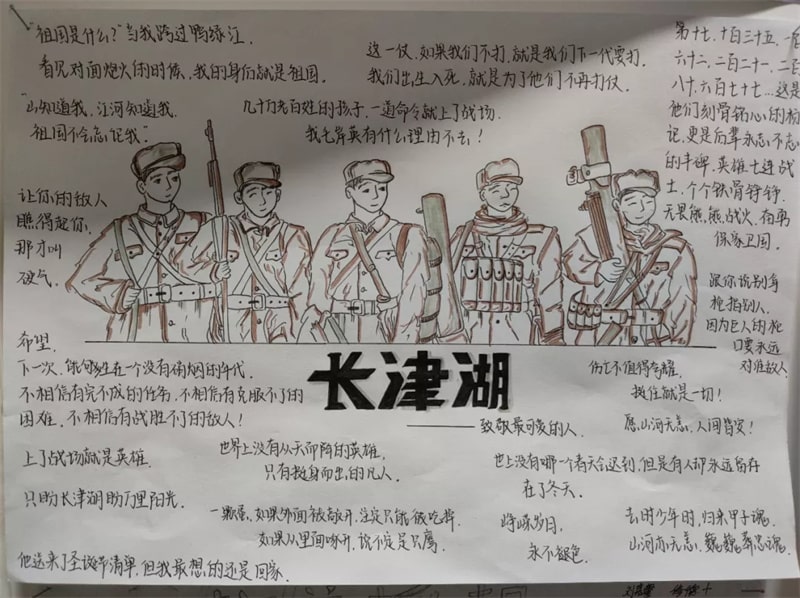 "祖国是什么?"当我跨过鸭绿江.
看见对面炮火的时候,我的身后就是祖国.
这一仗,如果我们不打,就是我们下一代要打.
我们出生入死,就是为了他们不再打仗.
第十七,一百三十五,一百
六十二,二百二十一,二百
八十,六百七十七...这是
他们刻骨铭心的标
记,更是后辈永志不忘
的丰碑,英雄七连战
士,个个铁骨铮铮,
无畏熊熊战火,奋勇
保家卫国.
"山知道我,江河知道我.
祖国不会忘记我"
几十万老百姓的孩子,一道命令就上了战场.
我毛岸英有什么理由不去!
让你的敌人
瞧得起你,
那才叫
硬气.
跟你说别拿
枪指别人.
因为巨人的枪
口要永远
对准敌人.
希望
下一次,能够生在一个没有硝烟的年代.
不相信有完不成的任务,不相信有克服不了的
困难,不相信有战胜不了的敌人!
长津湖
——致敬最可爱的人.
伤亡不值得夸耀.
挺住就是一切!
愿,山河无恙,人间皆安!
上了战场就是英雄.
只盼长津湖的万里阳光.
世界上没有从天而降的英雄.
只有挺身而出的凡人.
也上没有哪一个春天会迟到,但是有人却永远留存
在了冬天.
一颗蛋,如果外面被敲开,注定只能被吃掉.
如果从里面啄开,说不定是只鹰.
峥嵘岁月,
永不褪色.
去时少年时,归来甲子魂.
山河亦无恙,巍巍葬忠魂.
他送来了圣诞节清单,但我最想的还是回家.